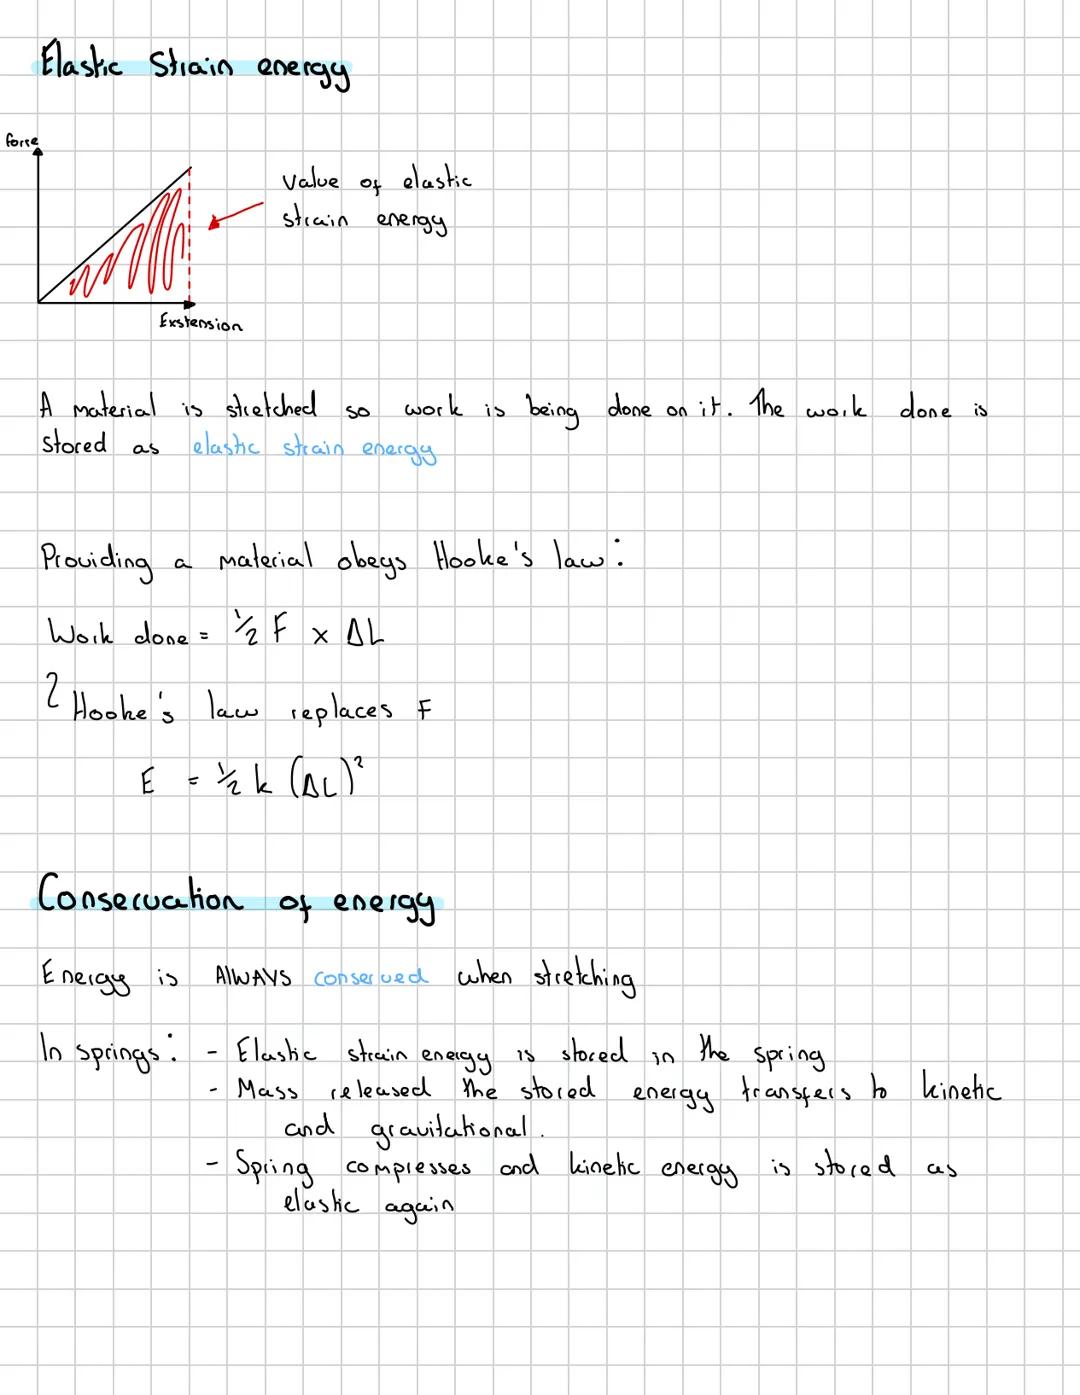 Elastic Strain energy
force
value of elastic
strain energy
Exstension
A material is stretched so work is being done on it. The work done is
stored as elastic strain energy
Providing a material obeys Hooke's law:
Work done = 1/2 F x ΔL
Hooke's law replaces F
E = 1/2 k (ΔL)²
Conservation of energy
Energy is AlWAYS conserved when stretching
In springs: - Elastic strain energy is stored in the spring
- Mass released the stored energy transfers to kinetic
and gravitational.
- Spring compresses and kinetic energy is stored as
elastic again